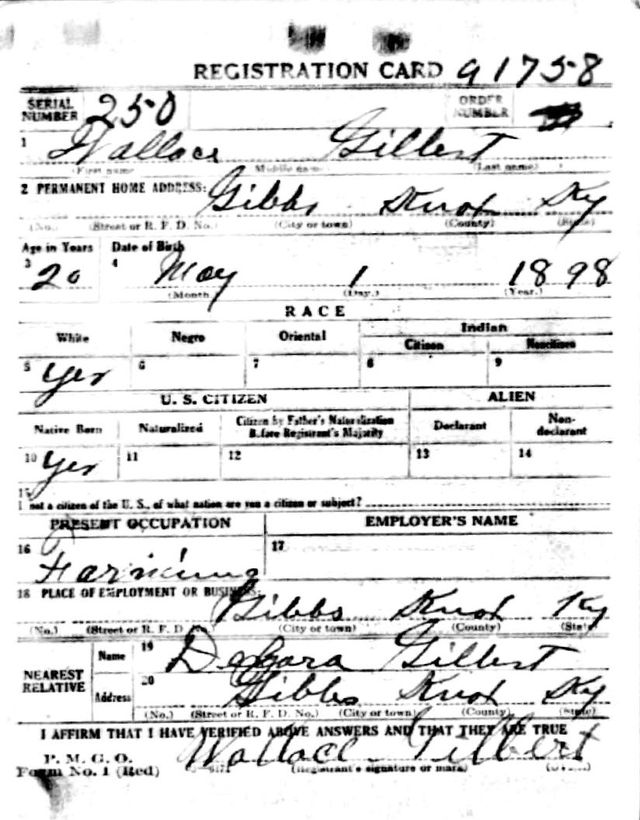 REGISTRATION CARD 91758
SERIAL NUMBER 250 ORDER NUMBER
1 Wallace Gilbert
(First name) (Middle name) (Last name)
2 PERMANENT HOME ADDRESS: Gibbs Knox Ky
(No.) (Street or R. F. D. No.) (City or town) (County) (State)
Age in Years Date of Birth
3 20 4 May 1 1898
(Month) (Day.) (Year.)
RACE
White Negro Oriental Indian
Citizen Noncitizen
5 Yes 6 7 8 9
U. S. CITIZEN ALIEN
Native Born Naturalized Citizen by Father's Naturalization Before Registrant's Majority Declarant Non-declarant
10 Yes 11 12 13 14
15
If not a citizen of the U. S., of what nation are you a citizen or subject?
PRESENT OCCUPATION EMPLOYER'S NAME
16 Farming 17
18 PLACE OF EMPLOYMENT OR BUSINESS: Gibbs Knox Ky
(No.) (Street or R. F. D. No.) (City or town) (County) (State)
NEAREST RELATIVE Name 19 Gilbert
Address 20 Gibbs Knox Ky
(No.) (Street or R. F. D. No.) (City or town) (County) (State)
I AFFIRM THAT I HAVE VERIFIED ABOVE ANSWERS AND THAT THEY ARE TRUE
P. M. G. O.
Form No. 1 (Red) Wallace Gilbert
(Registrant's signature or mark)